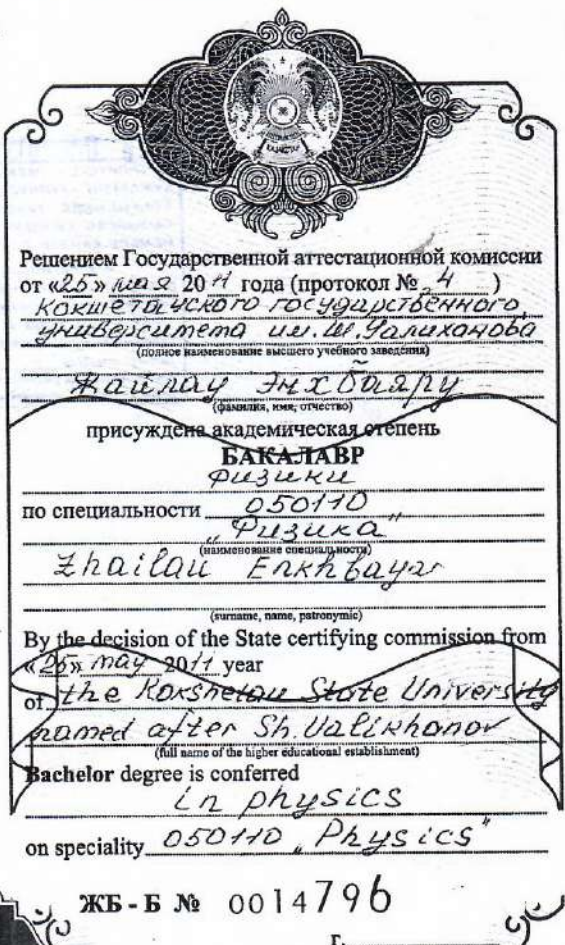 Решением Государственной аттестационной комиссии
от «25» мая 2011 года (протокол № 4 )
Кокшетауского государственного
университета им. Ш. Уалиханова
(полное наименование высшего учебного заведения)
Жайлау Энхбаяру
(фамилия, имя, отчество)
присуждена академическая степень
БАКАЛАВР
физики
по специальности 050110
„Физика“
(наименование специальности)
Zhailau Enkhbayar
(surname, name, patronymic)
By the decision of the State certifying commission from
«25» may 2011 year
of the Kokshetau State University
named after Sh. Ualikhanov
(full name of the higher educational establishment)
Bachelor degree is conferred
in physics
on speciality 050110 „Physics“
ЖБ - Б № 0014796
г.